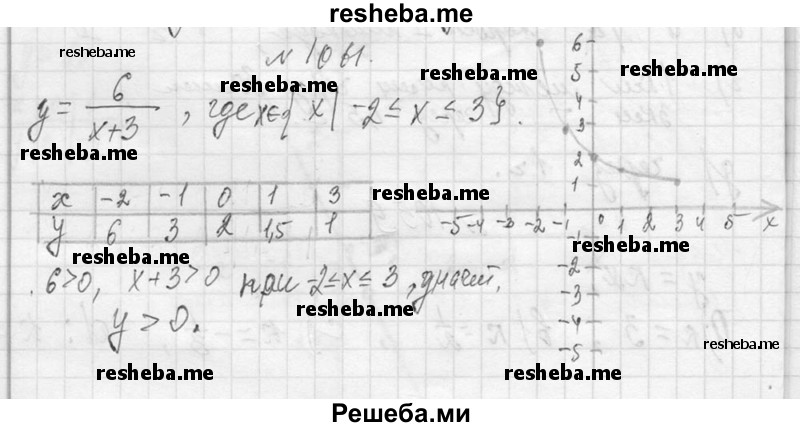 resheba.me
resheba.me
N 1061.
resheba.me resheba.me resheba.me
y = 6/(x+3), где x∈{x|-2≤x≤3}.
resheba.me
x -2 -1 0 1 3
y 6 3 2 1,5 1
resheba.me
6>0, x+3>0 при -2≤x≤3, значит,
resheba.me
y>0.
resheba.me
6
5
4
3
2
1
-5 -4 -3 -2 -1 0 1 2 3 4 5 x
-1
resheba.me
-2
-3
-4
-5
resheba.me
resheba.me resheba.me
Решеба.ми